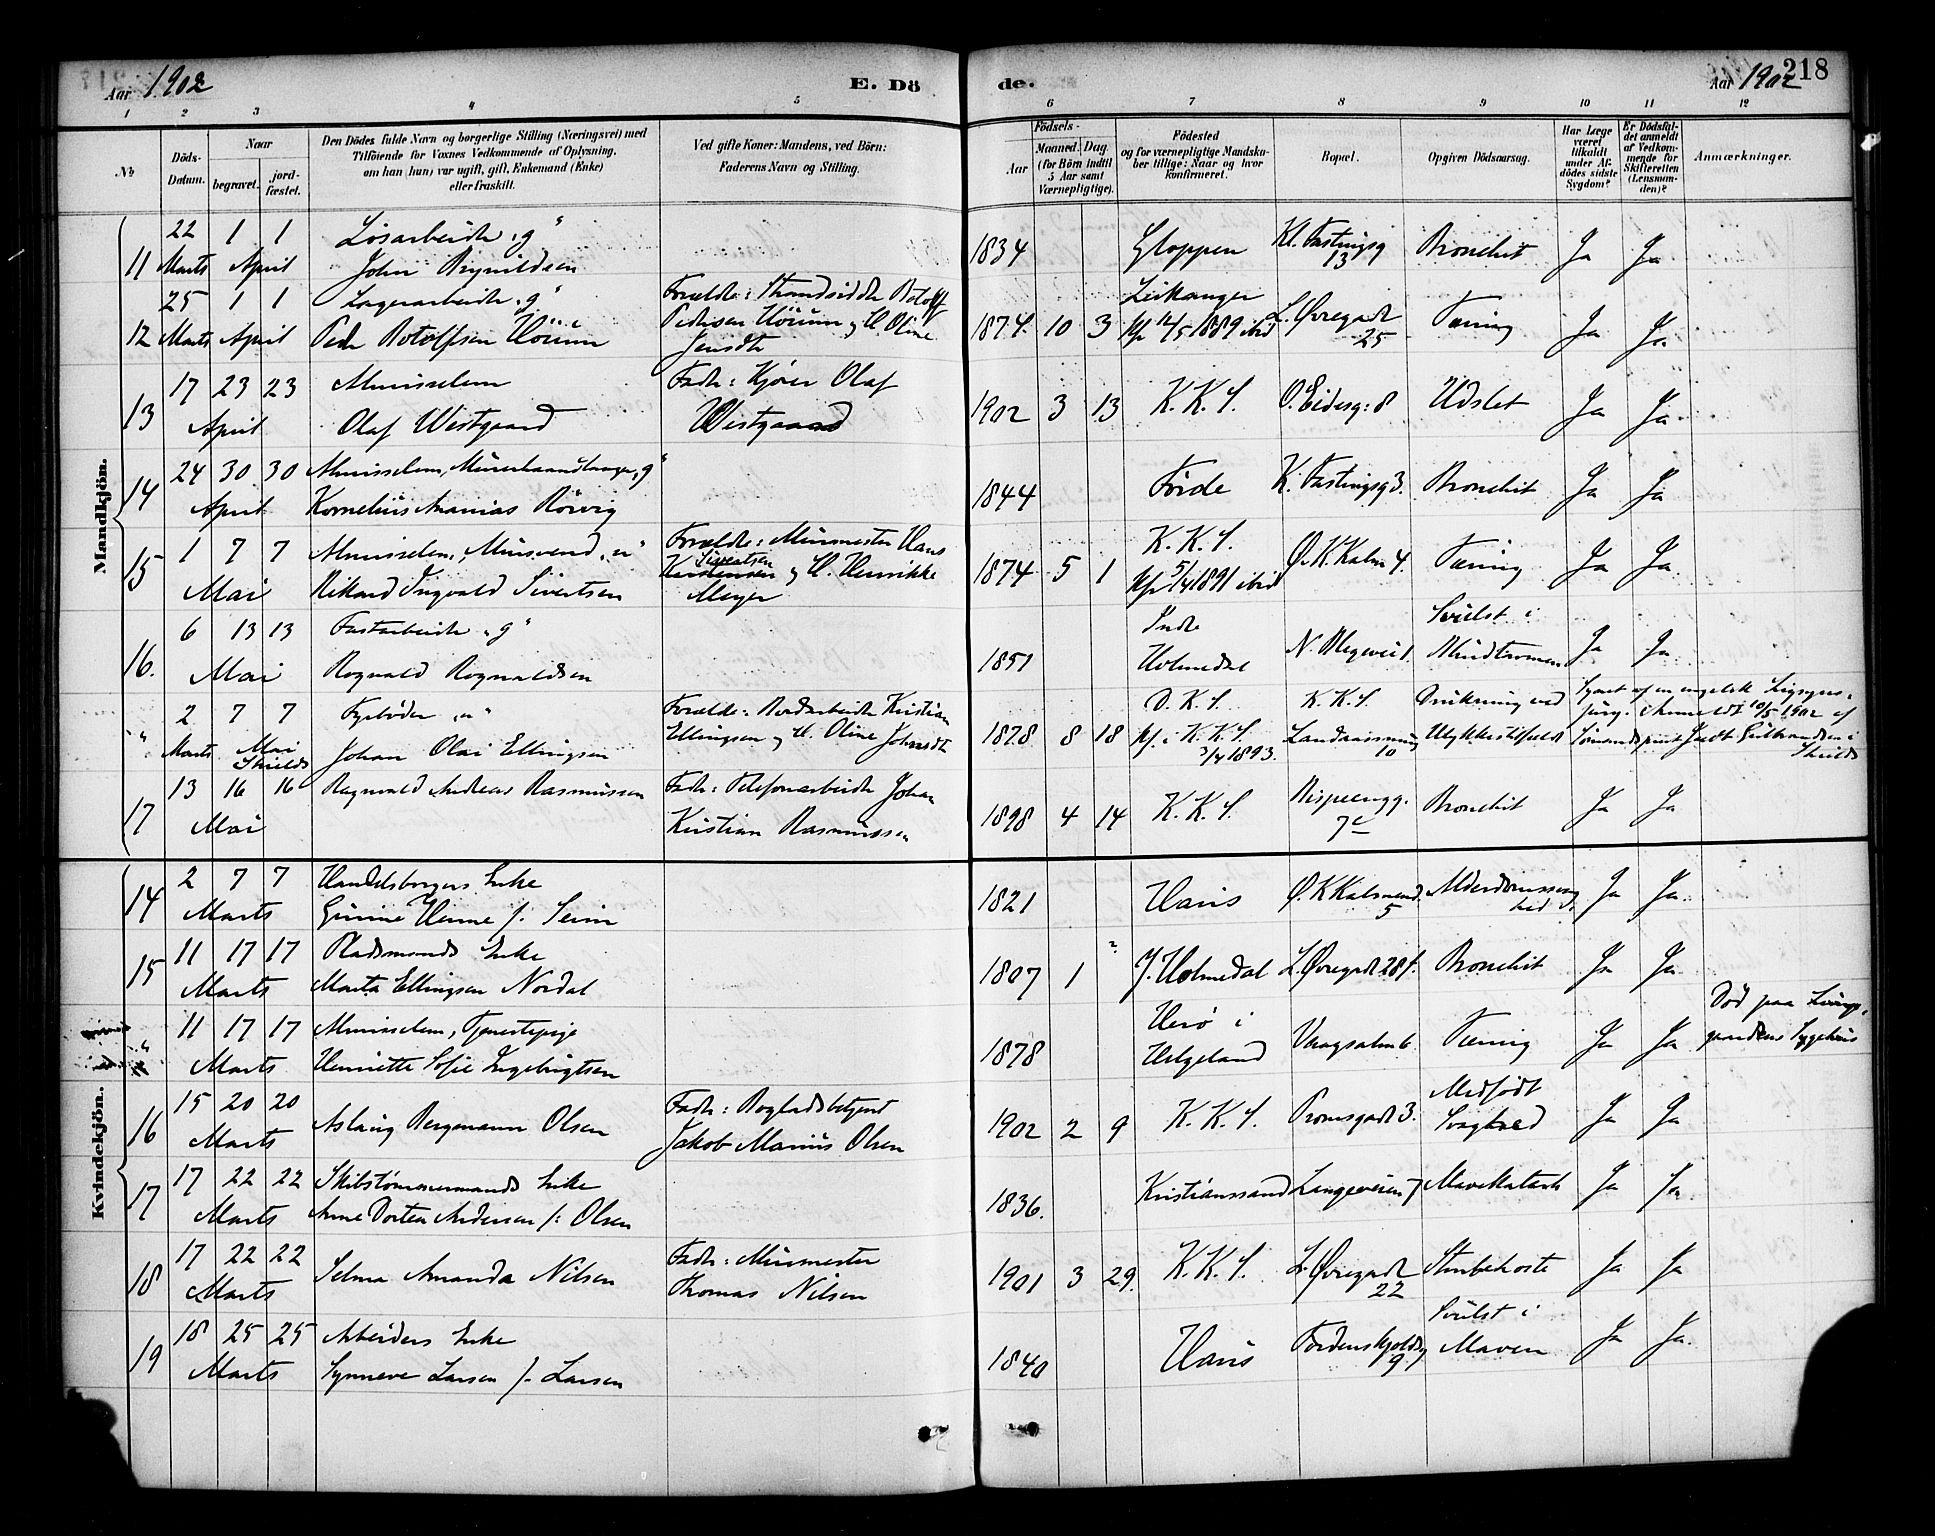 Aar 1902
E. Dö
de.
Aar 1902
218
1 2 3 4 5 6 7 8 9 10 11 12
No
Döds-Datum.
Naar
begravet.
jordfæstet.
Den Dödes fulde Navn og borgerlige Stilling (Næringsvei) med
Tilföiende for Voxnes Vedkommende af Oplysning,
om han (hun) var ugift, gift, Enkemand (Enke)
eller fraskilt.
Ved gifte Koner: Mandens, ved Börn:
Faderens Navn og Stilling.
Födsels-
Aar
Maaned. Dag.
(for Börn indtil
5 Aar samt
Værnepligtige).
Födested
og for værnepligtige Mandska-
ber tillige: Naar og hvor
konfirmeret.
Bopæl.
Opgiven Dödsaarsag.
Har Læge
været
tilkaldt
under Af-
dödes sidste
Sygdom?
Er Dödsfal-
det anmeldt
af Vedkom-
mende for
Skifteretten
(Lensman-
den)?
Anmærkninger.
Mandkjön.
11 22 Marts 1 1 April Lösarbeider "g"
John Brynildsen
1834 Gloppen Kl. Fastingsg 13 Bronchit Ja Ja
12 25 Marts 1 1 April Lagerarbeider "g"
Peder Rotolfsen
Forældre: Strandsidder Botolf
Pedersen og H. Oline
Jensdtr
1874. 10 3 Leikanger
kfr 12/5 1889 ibid L. Øvregade 25 Tæring Ja Ja
13 17 23 23 April Almisselem
Olaf Westgaard
Fader: Kjører Olaf
Westgaard
1902 3 13 K. K. S. O. Eidesg: 8 Udslet Ja Ja
14 24 30 30 April Almisselem, Murerhaandlanger "g"
Kornelius Ananias Rörvig
1844 Förde K. Fastingsg 3. Bronchit Ja Ja
15 1 7 7 Mai Almisselem, Mursvend "u"
Rikard Ingvald Sivertsen
Forældre: Murmester Hans
Sivertsen
Kristensen og H. Henrikke
Meyer
1874 5 1 K. K. S.
kfr 5/4 1891 ibid Ø. K. Kalm 4. Tæring Ja Ja
16. 6 13 13 Mai Fastarbeider "g"
Rognald Rognaldsen
1851 Indre
Holmedal N. Blegevei 1. Svulst i
Ja Ja
" 2 Marts 7 7 Mai
Shields Fyrbøder "u"
Johan Olai Ellingsen
Forældre: Kristian
Ellingsen og H. Oline Johnsdtr
1878 8 18 D. K. S.
kfr. i K. K. S.
3/4 1893. K. K. S.
10 Drukning ved
Ulykkestilfælde
Anmeldt 10/5 1902 af
Sømandsprest i
Shields
17 13 16 16 Mai Ragnvald Andreas Rasmussen
Fader: Telefonarbeider Johan
Kristian Rasmussen
1898 4 14 K. K. S. Bispeengg.
7c Bronchit Ja Ja
Kvindekjön.
14 2 7 7 Marts Handelsborgers Enke
Gurine Henne f. Seim
1821 Haus Ø. K Kalmand. 5 Alderdomssvaghed Ja Ja
15 11 17 17 Marts Pladsmands Enke
Marta Ellingsen Nordal
1807 1 Y. Holmedal L. Øvregade 28 f. Bronchit Ja Ja
" 11 17 17 Marts Almisselem, Tjenestepige
Henriette Sofie Ingebrigtsen
1878 Herø i
Helgeland Vaagsalm 6. Tæring Ja Ja Død paa Lungegaardens Sygehus
16 15 20 20 Marts Aslaug Bergmann Olsen
Fader: Bogladsbetjent
Jakob Marius Olsen
1902 2 9 K. K. S. Promsgade 3. Medfødt
Svaghed Ja Ja
17 17 22 22 Marts Skibstømmermands Enke
Anne Dortea Andersen f: Olsen
1836. Kristianssand Langeveien 7 Mavekatarh Ja Ja
18 17 22 22 Marts Selma Amanda Nilsen
Fader: Murmester
Thomas Nilsen
1901 3 29. K. K. S. L. Øvregade
22 Strubehoste Ja Ja
19 18 25 25 Marts Arbeiders Enke
Synneve Larsen f. Larsen
1840 Haus Tordenskjoldsg
9 Svulst i
Maven Ja Ja